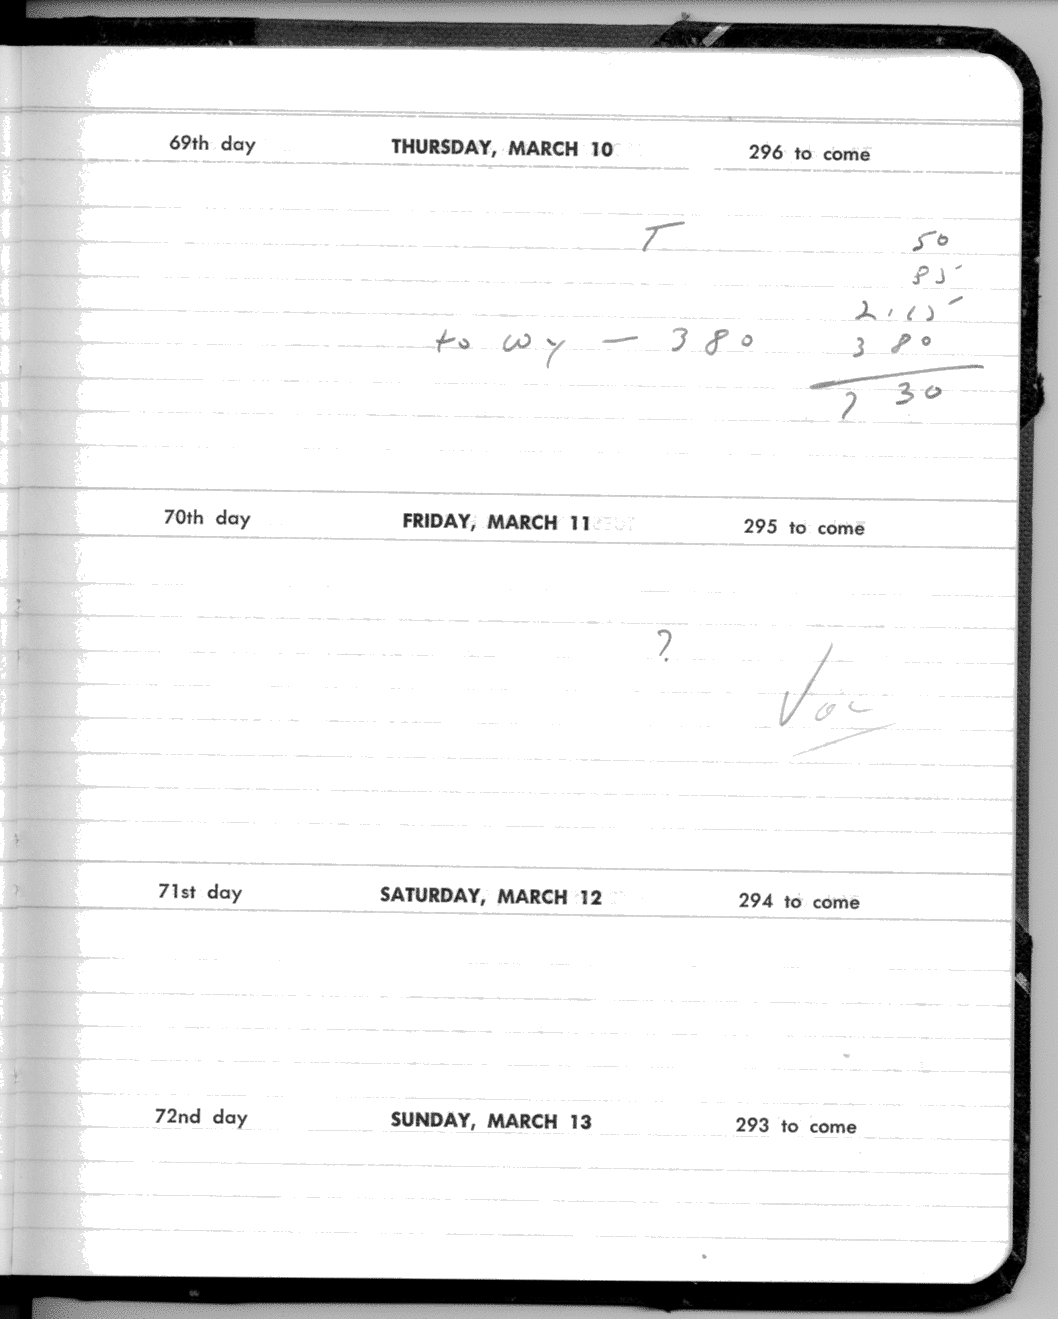 69th day THURSDAY, MARCH 10 296 to come
T 50
85
2.15
to wy — 380 3 80
7 30
70th day FRIDAY, MARCH 11 295 to come
?
71st day SATURDAY, MARCH 12 294 to come
72nd day SUNDAY, MARCH 13 293 to come